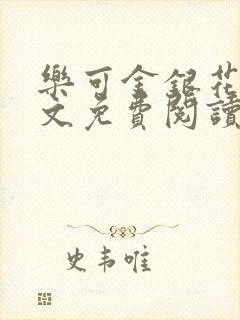 樂可金銀花
文免費閱讀
史韦唯